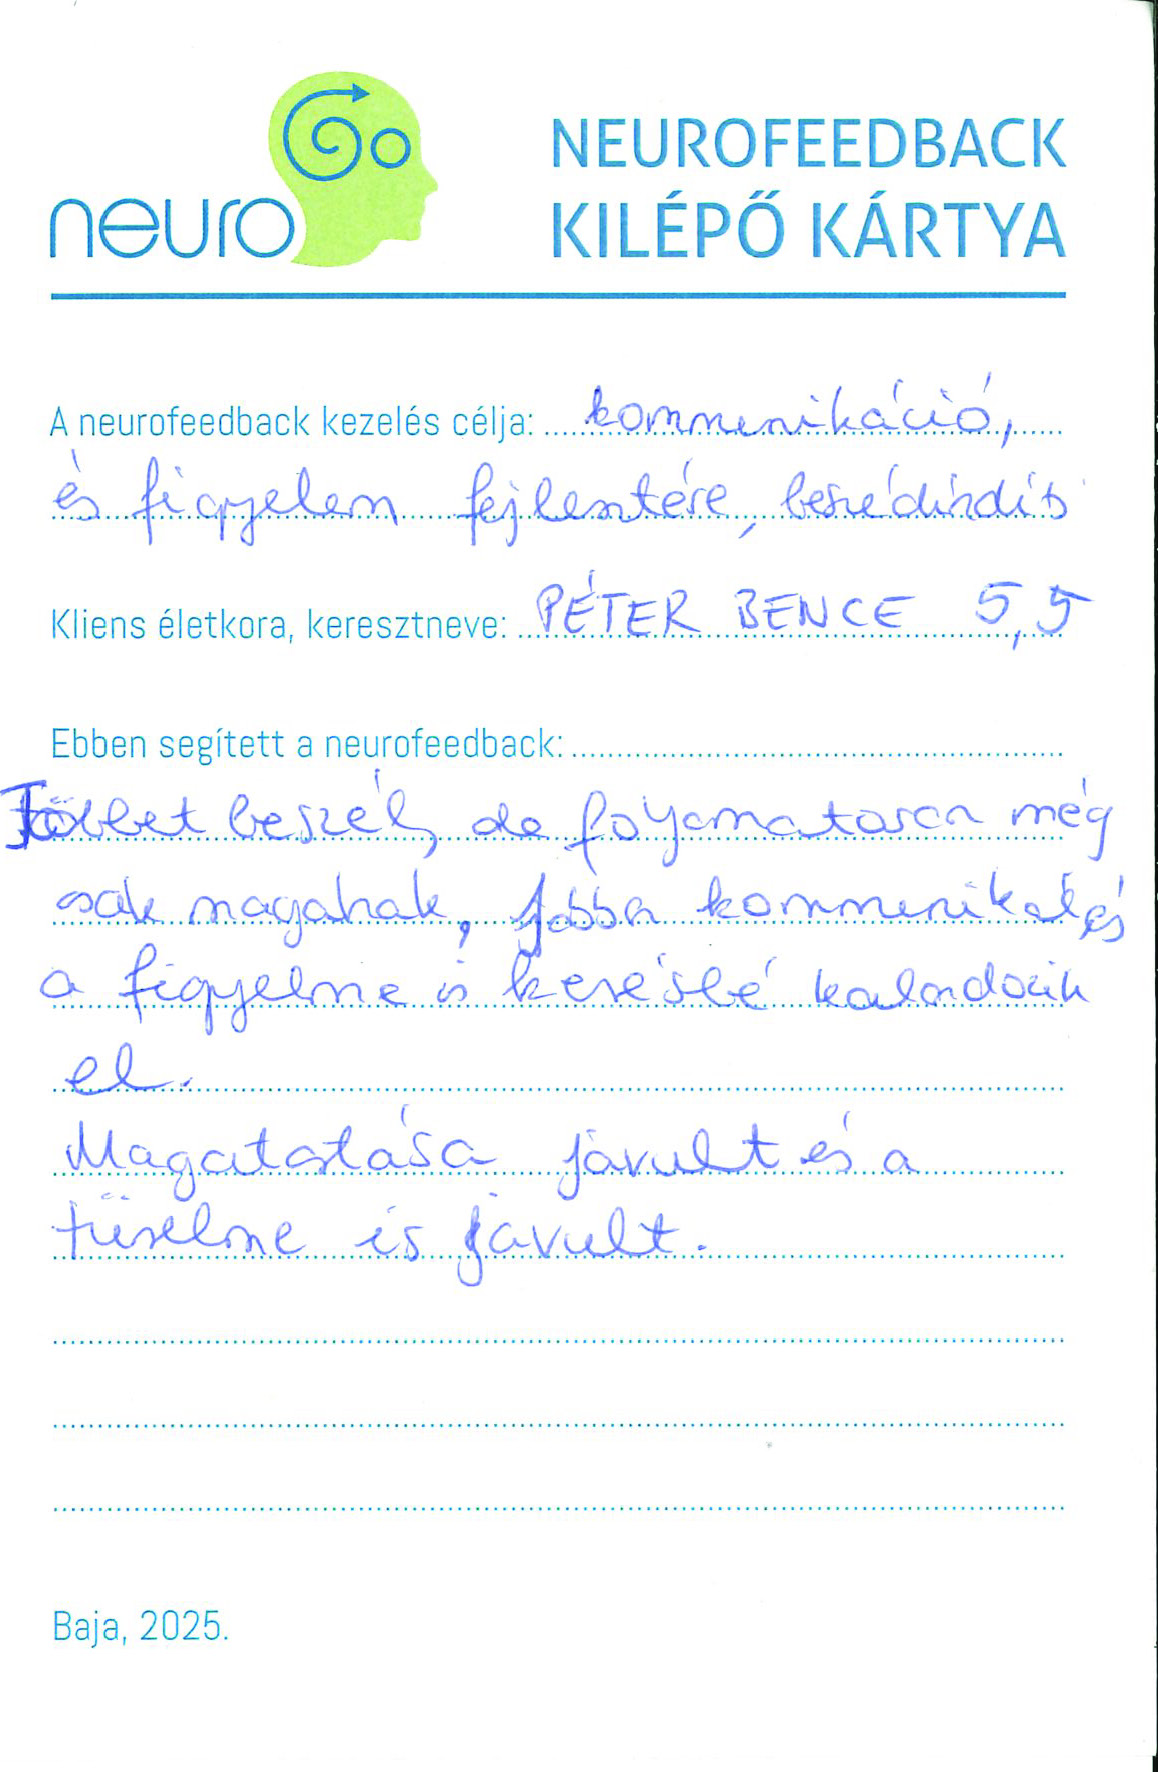 neuro
NEUROFEEDBACK
KILÉPŐ KÁRTYA
A neurofeedback kezelés célja: kommunikáció,
és figyelem fejlesztése, beszédindítás
Kliens életkora, keresztneve: PÉTER BENCE 5,5
Ebben segített a neurofeedback:
Többet beszél, de folyamatosan még
csak magának, jobban kommunikál és
a figyelme is kevésbé kalandozik
el.
Magatartása javult és a
türelme is javult.
Baja, 2025.